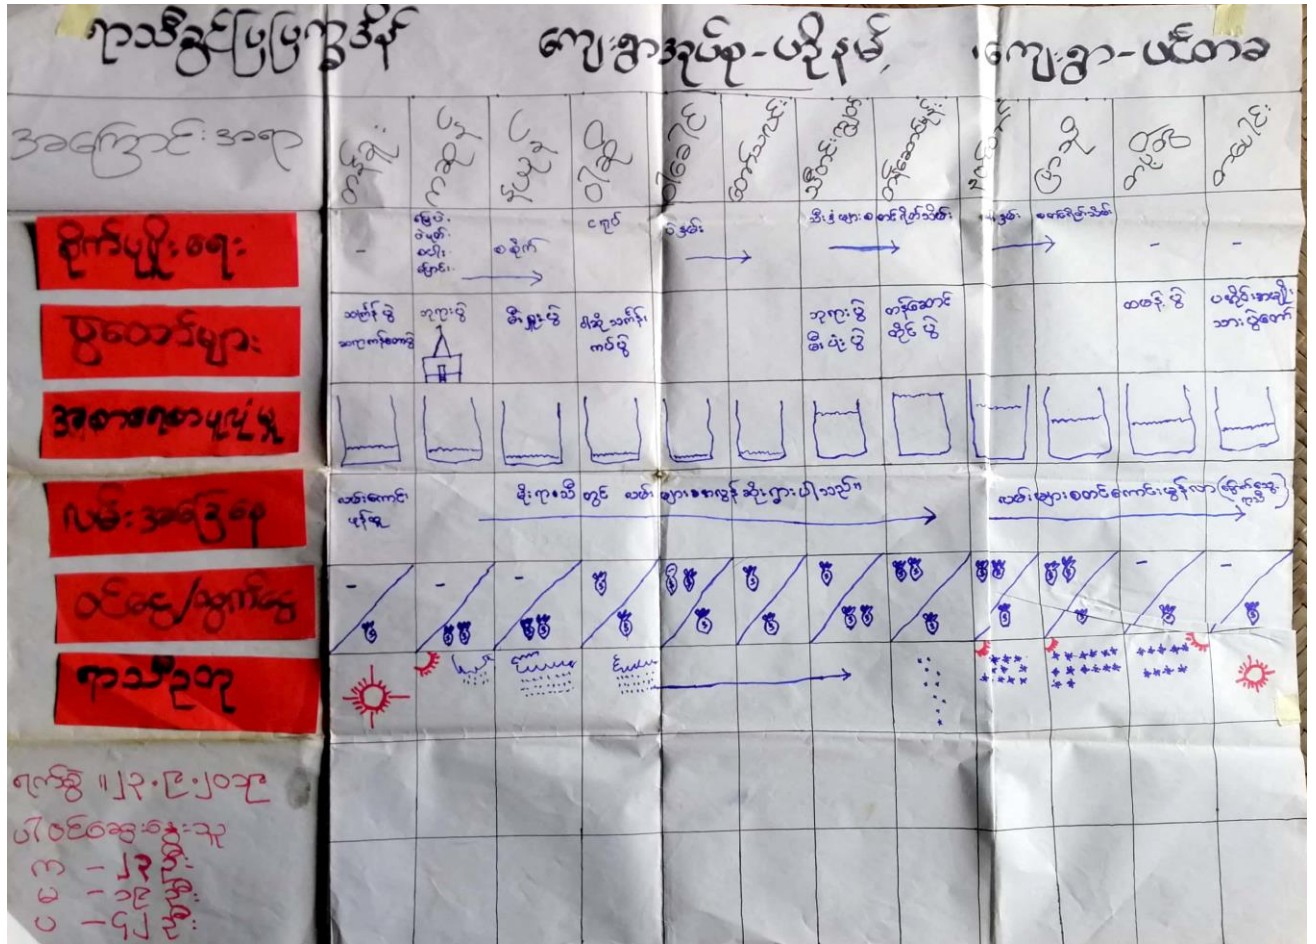 ရာသီခွင်ပြပြက္ခဒိန် ကျေးရွာအုပ်စု-ဟိုနမ် ကျေးရွာ-ပင်တခ
အကြောင်းအရာ တန်ခူး ကဆုန် နယုန် ဝါဆို ဝါခေါင် တော်သလင်း သီတင်းကျွတ် တန်ဆောင်မုန်း နတ်တော် ပြာသို တပို့တွဲ တပေါင်း
စိုက်ပျိုးရေး - မြေပဲ စပါး ပြောင်း စစိုက် ငရုပ် သီးနှံများစတင်ရိတ်သိမ်း စတင်ရိတ်သိမ်း - -
ပွဲတော်များ သင်္ကြန်ပွဲ ဘုရားပွဲ မီးရှူးပွဲ ဝါဆိုသင်္ကန်းကပ်ပွဲ ဘုရားပွဲ မီးပုံးပွဲ တန်ဆောင်တိုင်ပွဲ ထမနဲပွဲ ပအိုဝ်းအမျိုးသားပွဲတော်
အစားရေစာဖူလုံမှု
လမ်းအခြေနေ လမ်းကောင်း ဖုန်ထူ မိုးရာသီတွင် လမ်းများအလွန်ဆိုးရွားပါသည်။ လမ်းများစတင်ကောင်းမွန်လာ
ဝင်ငွေ/ထွက်ငွေ - - - - -
ရာသီဥတု
ရက်စွဲ ။၂၃.၉.၂၀၁၉
ပါဝင်ဆွေးနွေးသူ
ကျ - ၂၃ ဦး
မ - ၁၉ ဦး
ပ - ၄၂ ဦး